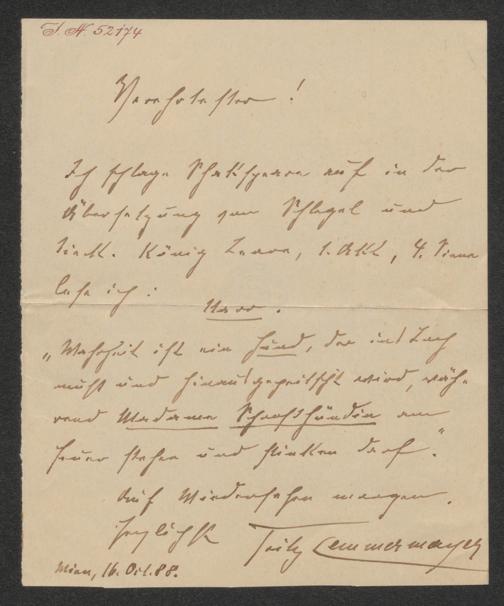 I. N. 52174
Verehrtester!
Ich schlage Shakspeare auf in der
Übersetzung von Schlegel und
Tieck. König Lear, 1. Akt, 4. Scene
lese ich:
Narr.
„Wahrheit ist ein Hund, der ins Loch
muß und hinausgepeitscht wird, wäh-
rend Madame Schooßhündin am
Feuer stehen und stinken darf."
Auf Wiedersehen morgen.
Herzlichst Fritz Lemmermayer
Wien, 16. Oct. 88.